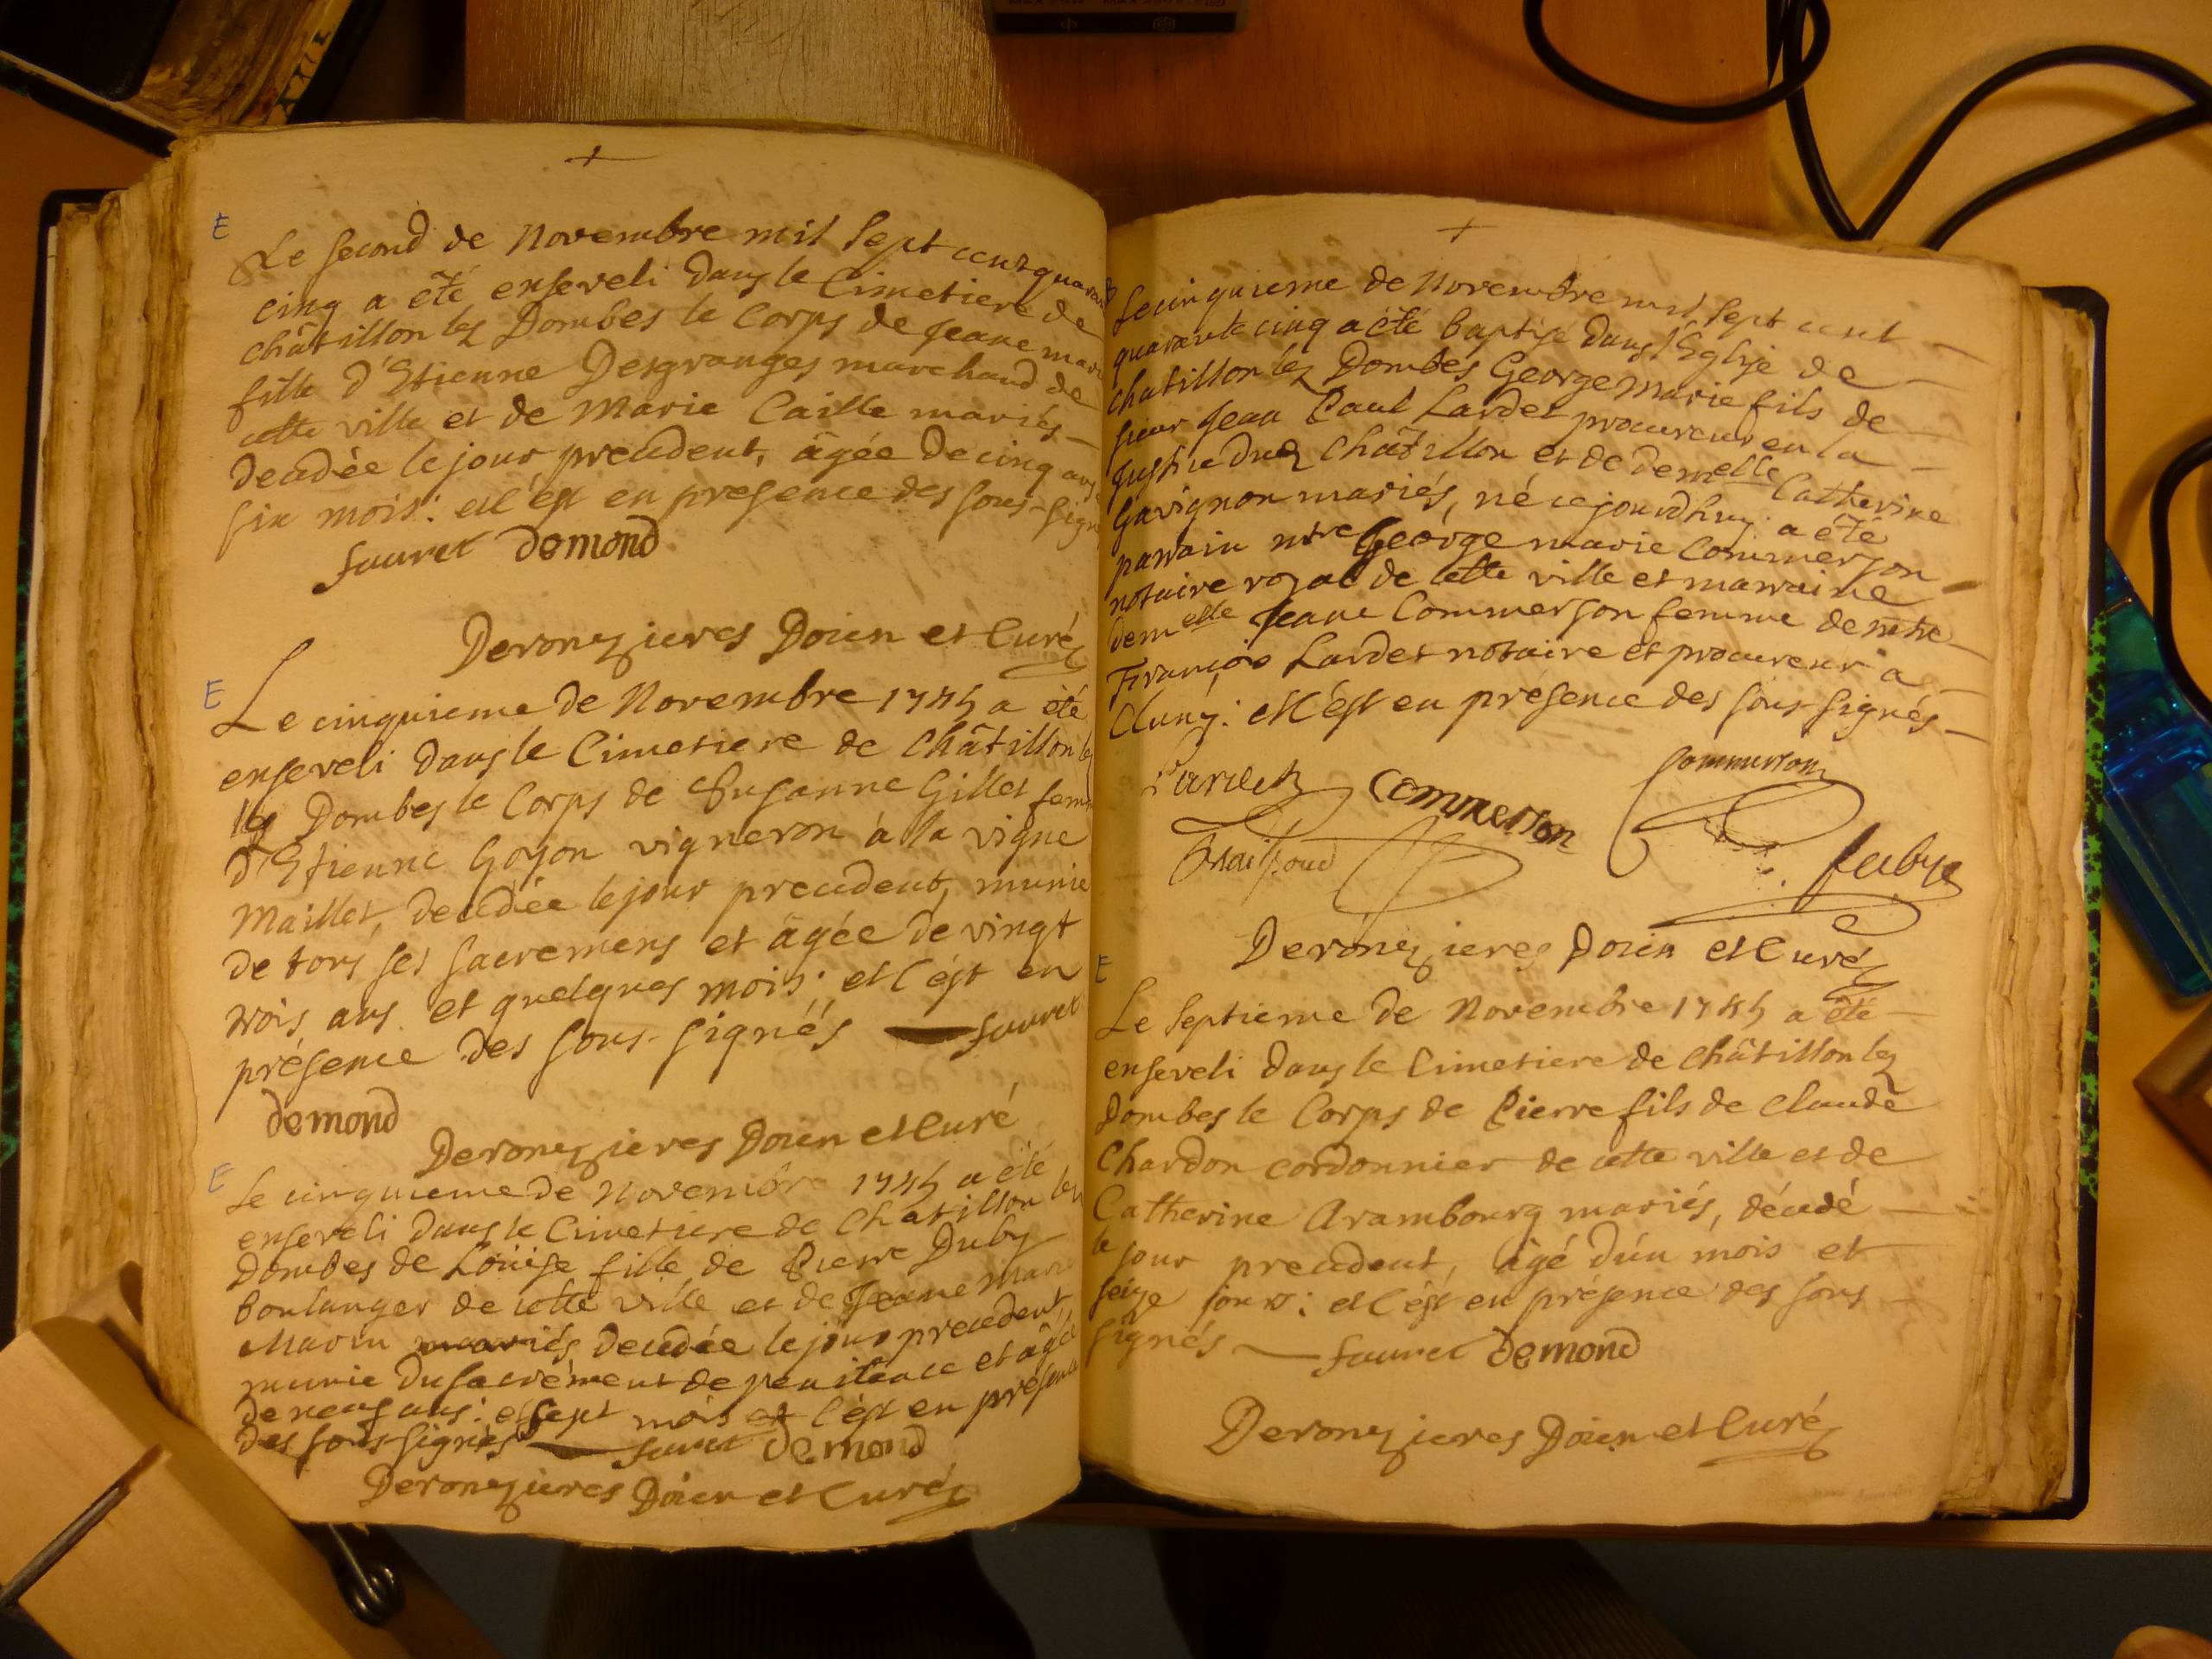 +
E
Le second de Novembre mil sept cent quaran
cinq a été enseveli dans le Cimetiere de
châtillon lez Dombes le Corps de Jeane mar
fille d'Etienne Desgranges marchand de
cette ville et de Marie Caille mariés
decédée le jour precedent, âgée de cinq ans
six mois: et c'est en presence des sous-sign
fauret Demond
Deronzieres Doien et Curé
E
Le cinquieme de Novembre 1745 a été
enseveli dans le Cimetiere de Châtillon
lez Dombes le Corps de Susanne Gillet fem
d'Etienne Goyon vigneron à la vigne
Maillet, decedée le jour precedent, munie
de tous ses sacremens et âgée de vingt
trois ans et quelques mois: et c'est en
présence des sous-signés fauret
demond
Deronzieres Doien et Curé
E
Le cinquieme de Novembre 1745 a été
enseveli dans le Cimetiere de Châtillon lez
Dombes de Loüise fille de Pierre Duby
boulanger de cette ville et de Jeane Marie
Marin mariés decedée le jour precedent,
munie du sacrément de penitence et agée
de neuf ans: et sept mois et c'est en presence
des sous-signés fauret demond
Deronzieres Doien et Curé
+
B
Le cinquieme de Novembre mil sept cent
quarante cinq a été baptisé dans l'Eglise de
chatillon lez Dombes George Marie fils de
sieur Jean Paul Lardet procureur en la
Justice dud Châtillon et de demelle Catherine
Gavignon mariés, né cejourdhuy: a été
parrain mtre George marie Commerson
notaire royal de cette ville et marraine
demelle Jeane Commerson femme de mtre
François Lardet notaire et procureur a
Cluny: et c'est en présence des sous-signés
Lardet Commerson Commerson
Deronzieres Doien et Curé
E
Le Septieme de Novembre 1745 a été
enseveli dans le Cimetiere de Châtillon lez
Dombes le Corps de Pierre fils de Claude
Chardon cordonnier de cette ville et de
Catherine Arambourg mariés, décédé
le jour precedent, âgé d'un mois et
seize jours: et c'est en présence des sous
signés fauret Demond
Deronzieres Doien et Curé